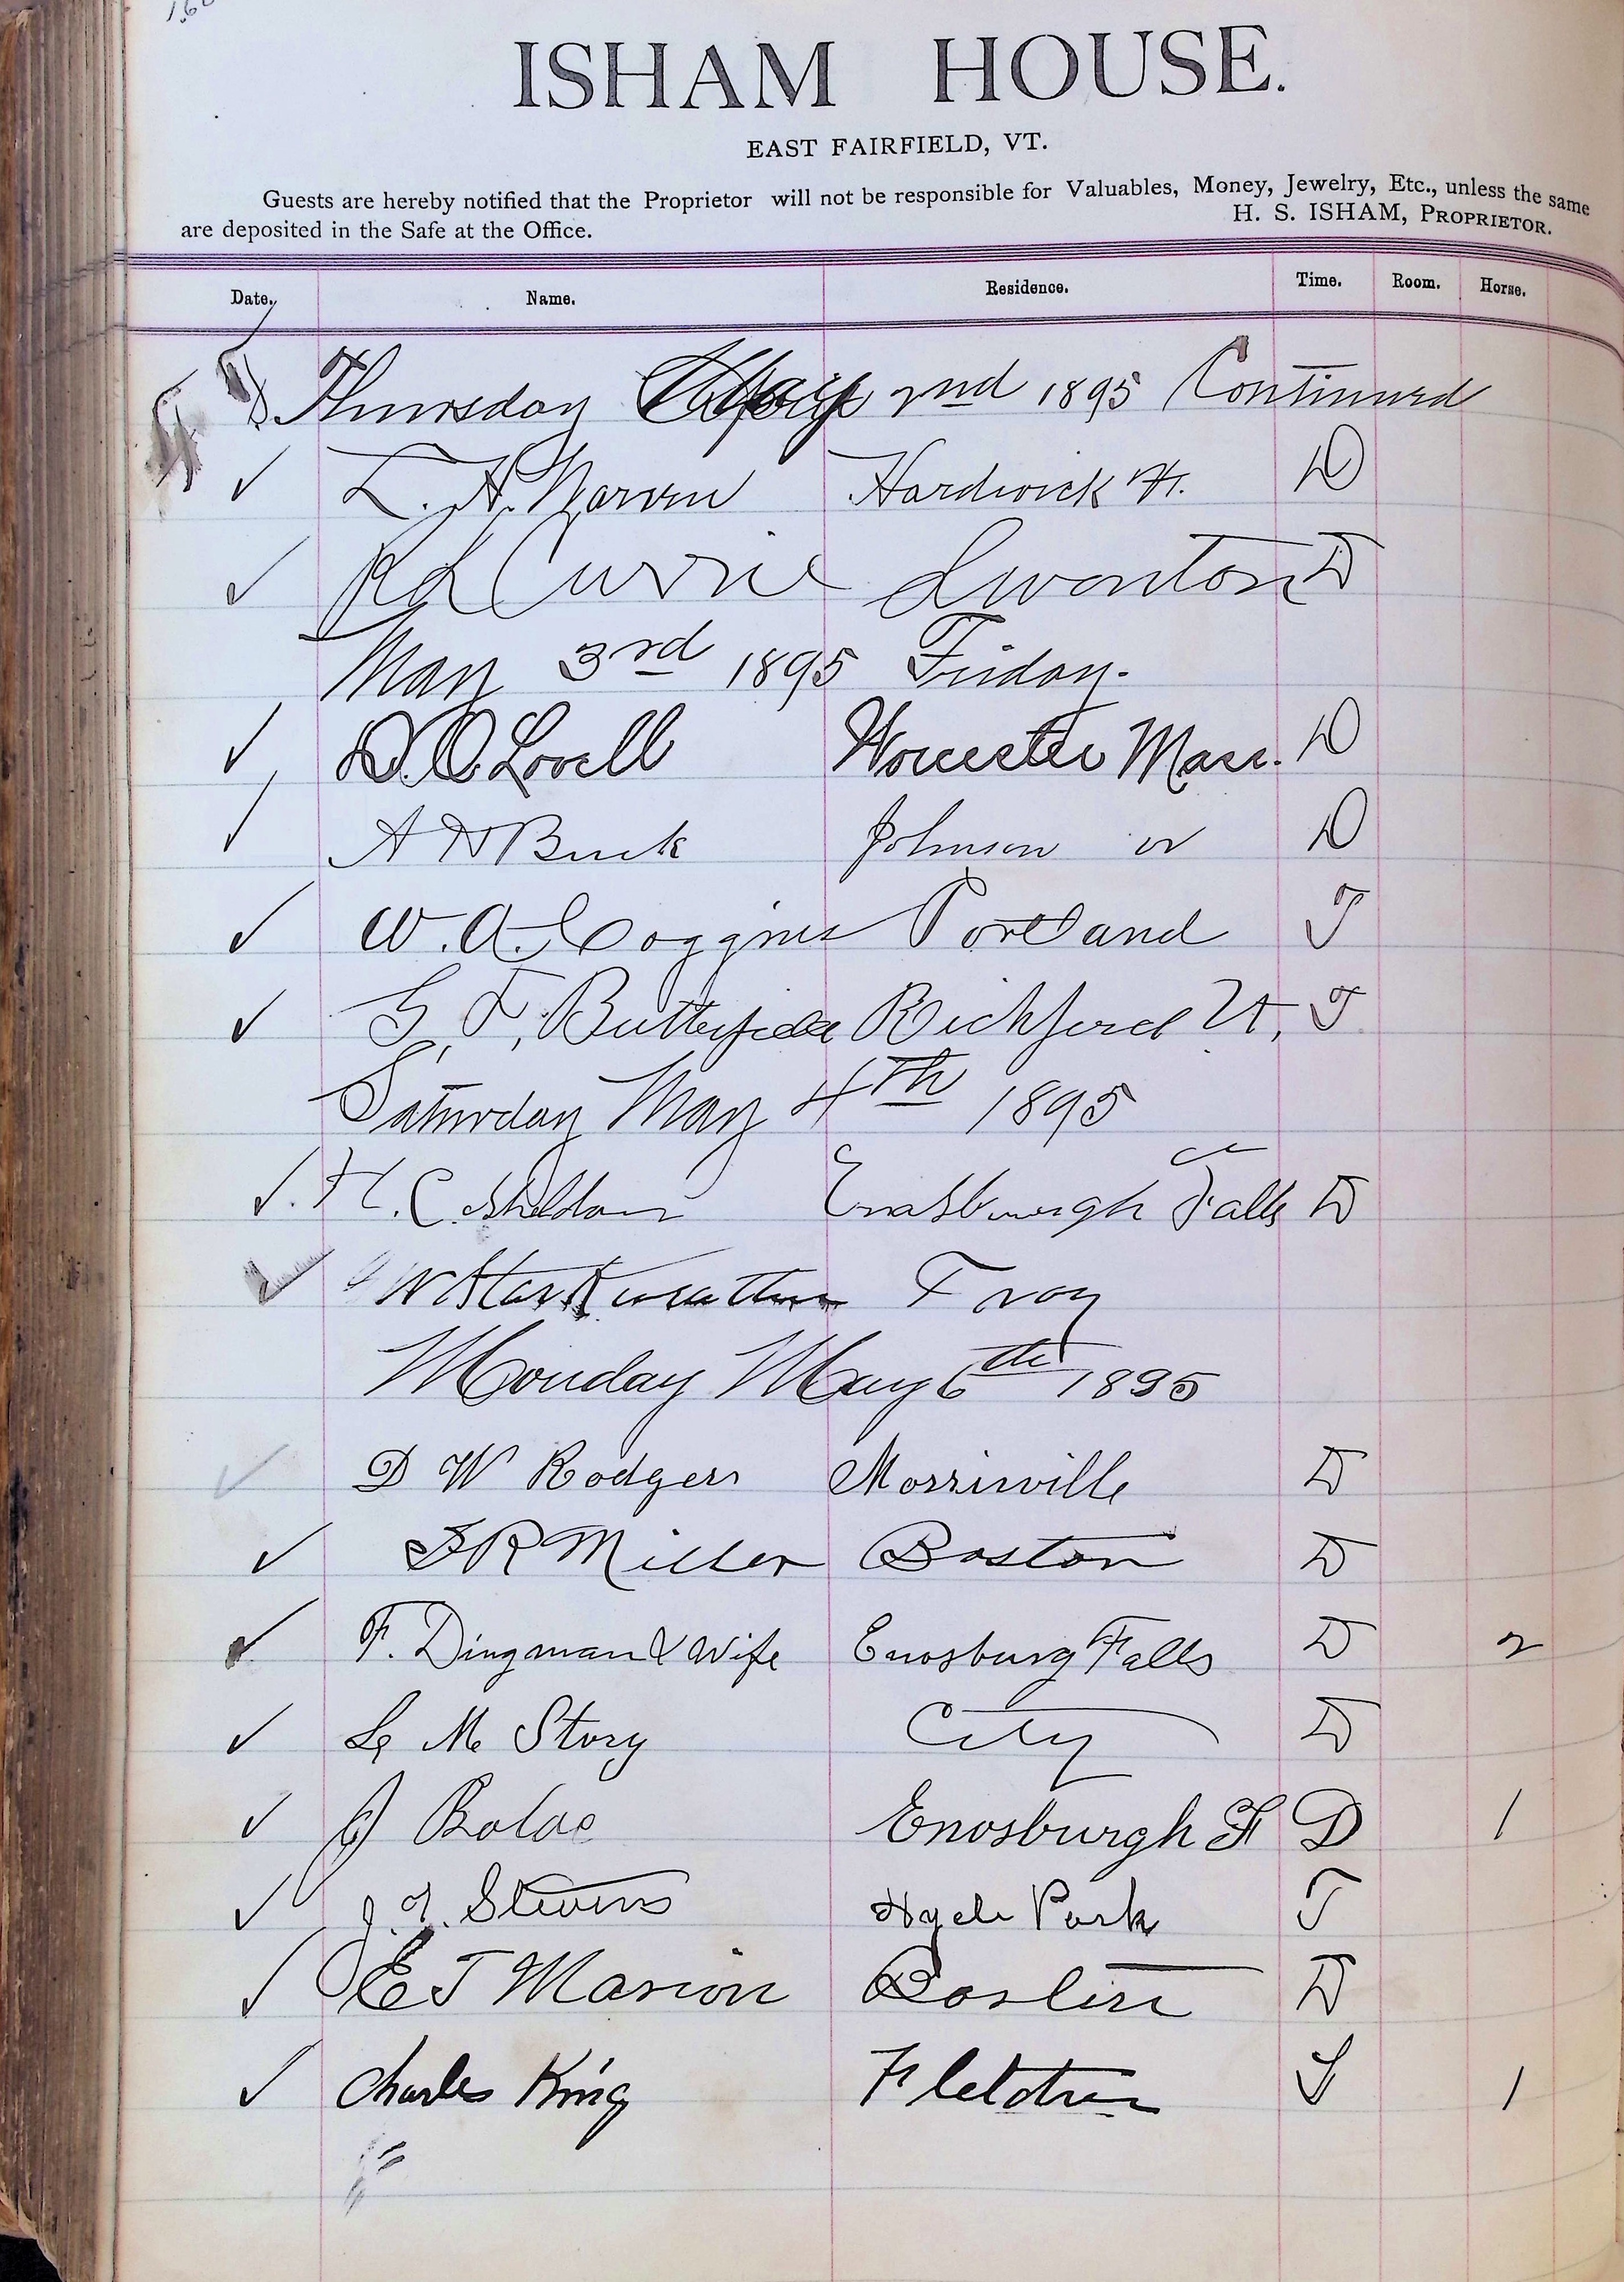 ISHAM HOUSE.
EAST FAIRFIELD, VT.
Guests are hereby notified that the Proprietor will not be responsible for Valuables, Money, Jewelry, Etc., unless the same
are deposited in the Safe at the Office. H. S. ISHAM, PROPRIETOR.
Date. Name. Residence. Time. Room. Horse.
Thursday May 2nd 1895 Continued
✓ L. A. Warren Hardwick Vt. D
✓ R L Currie Swanton D
May 3rd 1895 Friday.
✓ D. O. Lovell Worcester Mass. D
✓ A H Buck Johnson Vt D
✓ W. A. Coggins Portland T
✓ G. F. Butterfield Richford Vt, T
Saturday May 4th 1895
✓ H. C. Sheldon Enosburgh Falls D
✓ Troy
Monday May 6th 1895
✓ D W Rodgers Morrisville D
✓ F R Miller Boston D
✓ F. Dingman & Wife Enosburg Falls D 2
✓ L M Story City D
✓ J Enosburgh F D 1
✓ J. T. Stevens Hyde Park T
✓ E T Marion Boston D
✓ Charles King Fletcher S 1